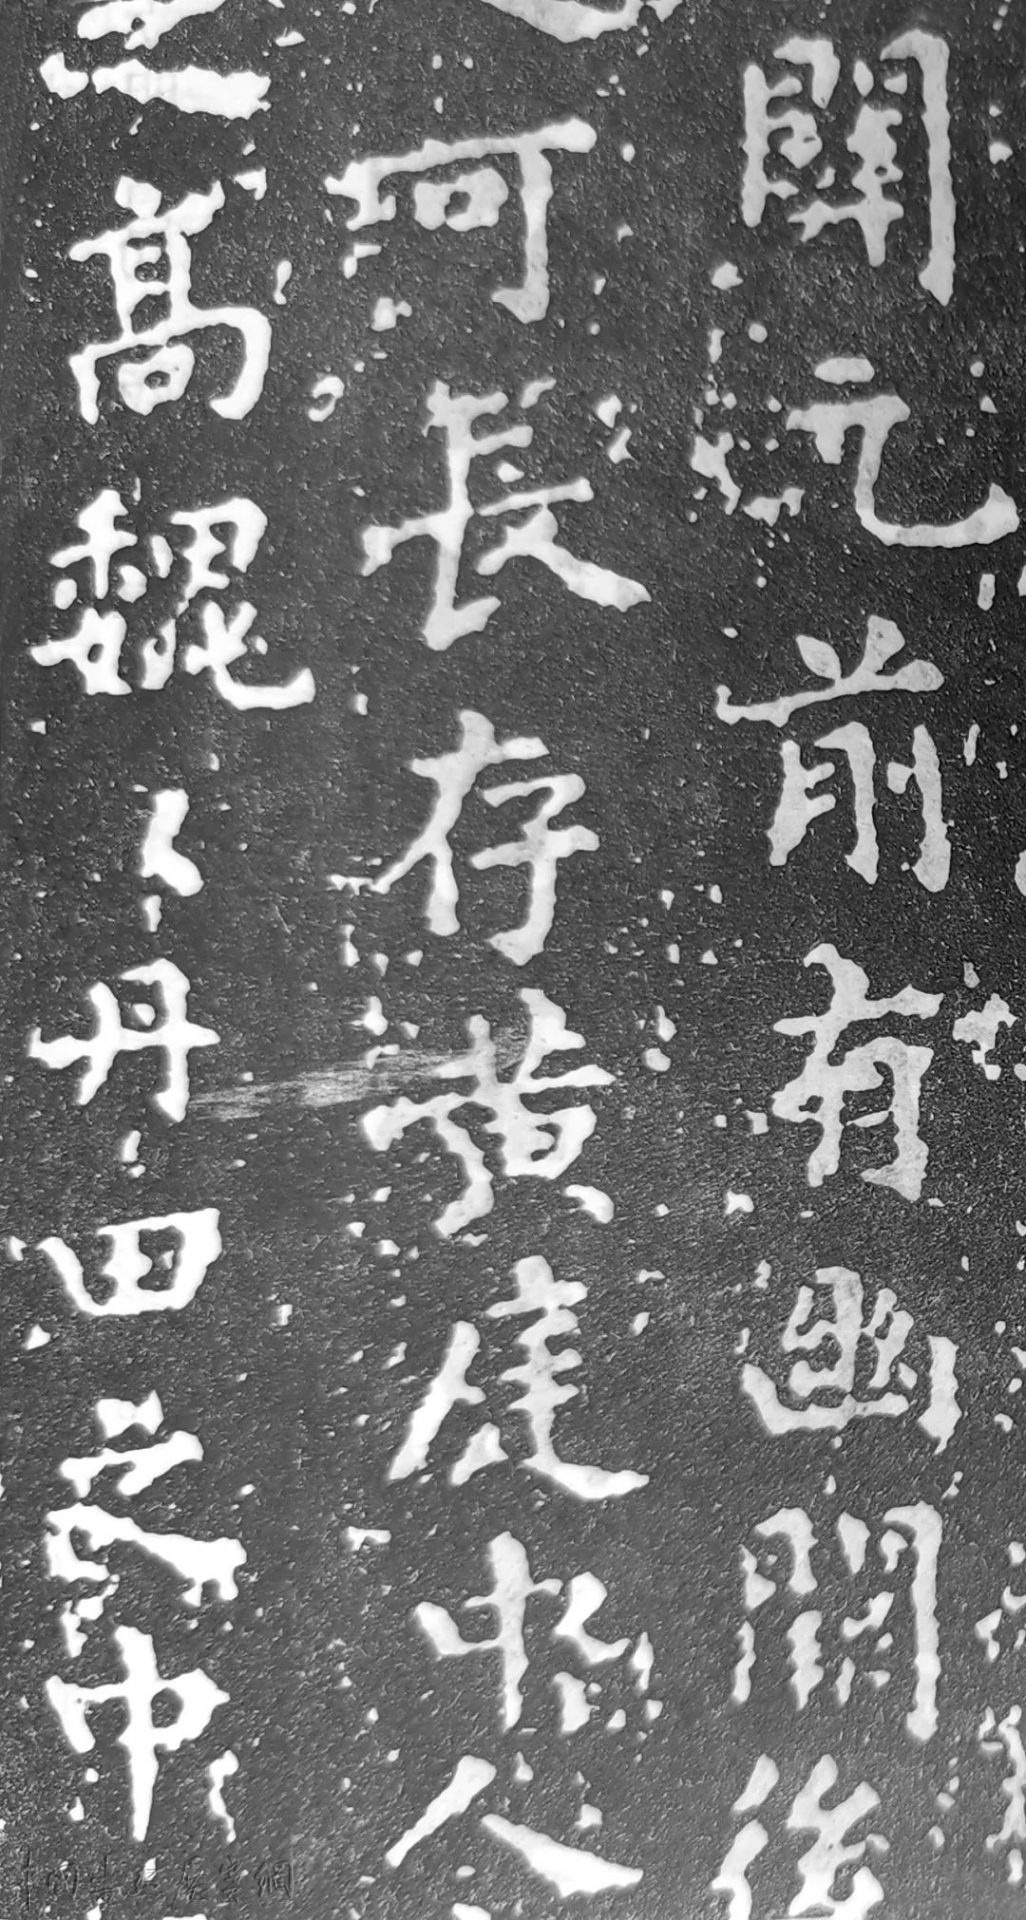 關元前有幽闕後
可長存黃庭中人
高魏〻丹田之中